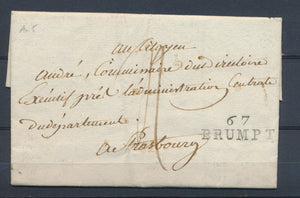 An 5
au Citoyen
André, Commissaire du Directoire
Exécutif près l'administration Centrale
du département.
a Strasbourg
67
BRUMPT